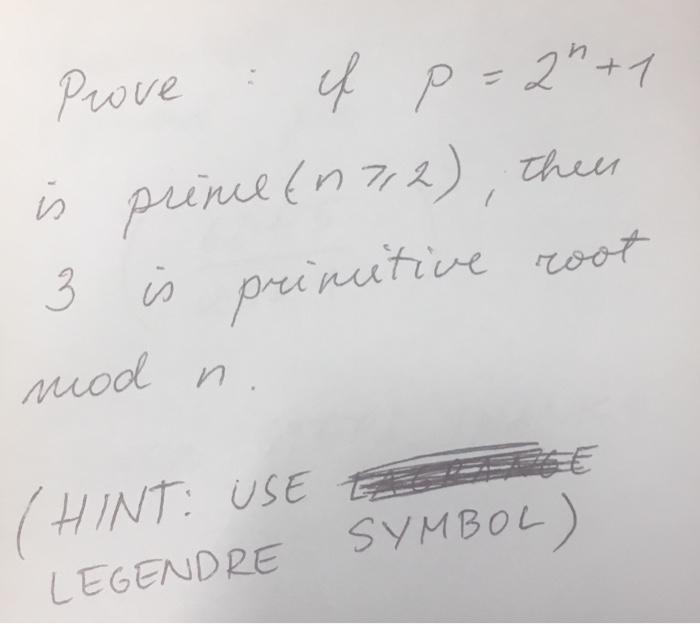 Prove : if p = 2ⁿ + 1
is prime (n ⩾ 2), then
3 is primitive root
mod n.
(HINT: USE LAGRANGE
LEGENDRE SYMBOL)